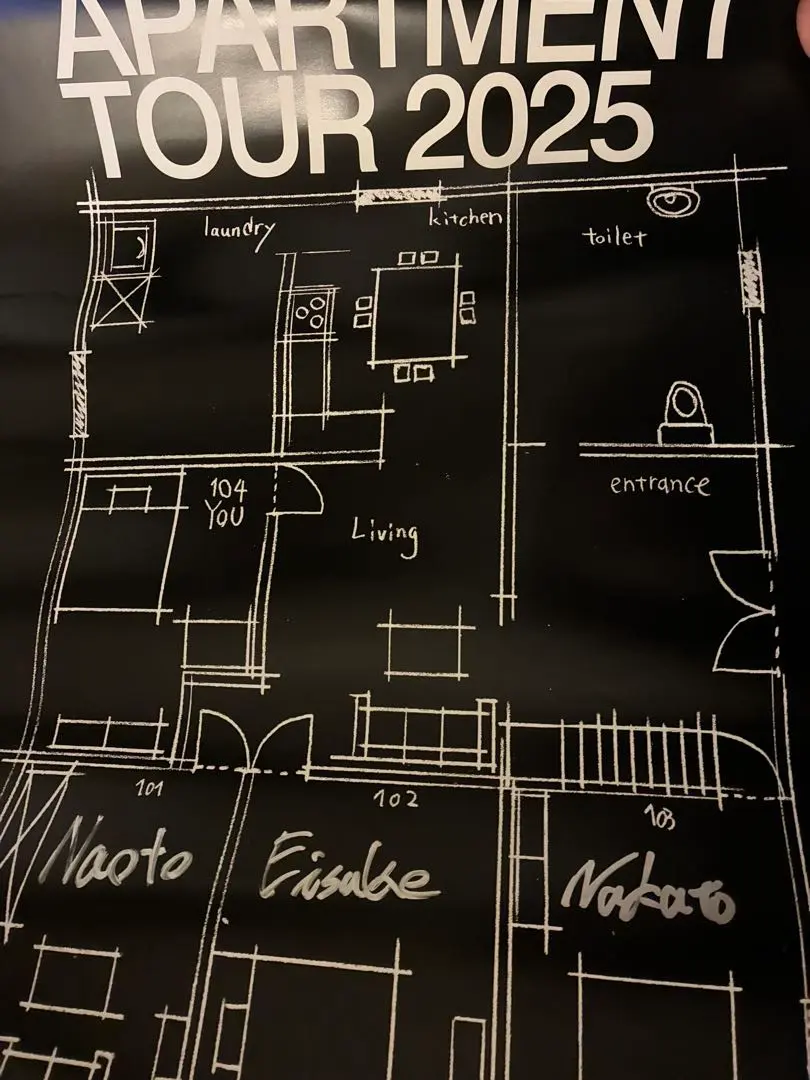 APARTMENT
TOUR 2025
laundry
kitchen
toilet
104
YOU
entrance
Living
101
102
103
Naoto
Eisuke
Nakato